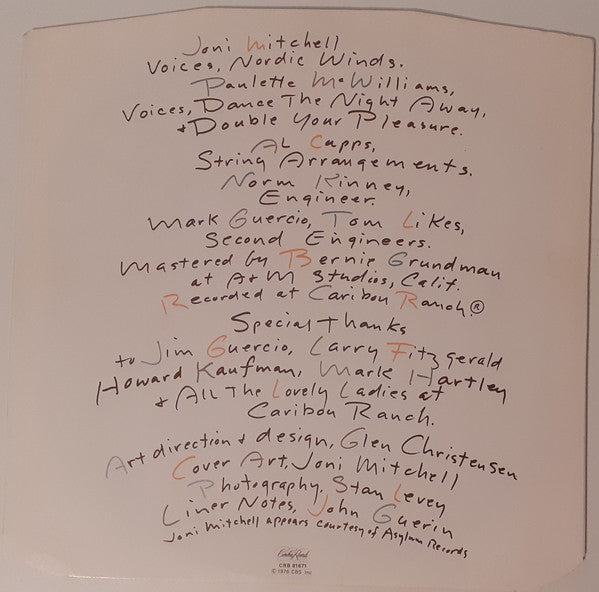 Joni Mitchell
Voices, Nordic Winds.
Paulette McWilliams,
Voices, Dance The Night Away,
+ Double Your Pleasure.
AL Capps,
String Arrangements.
Norm Kinney,
Engineer.
Mark Guercio, Tom Likes,
Second Engineers.
Mastered by Bernie Grundman
at A+M Studios, Calif.
Recorded at Caribou Ranch.®
Special Thanks
to Jim Guercio, Larry Fitzgerald
Howard Kaufman, Mark Hartley
+ All The Lovely Ladies at
Caribou Ranch.
Art direction + design, Glen Christensen
Cover Art, Joni Mitchell
Photography, Stan Levey
Liner Notes, John Guerin
Joni Mitchell appears courtesy of Asylum Records
Caribou Records
CRB 81671
© 1976 CBS Inc